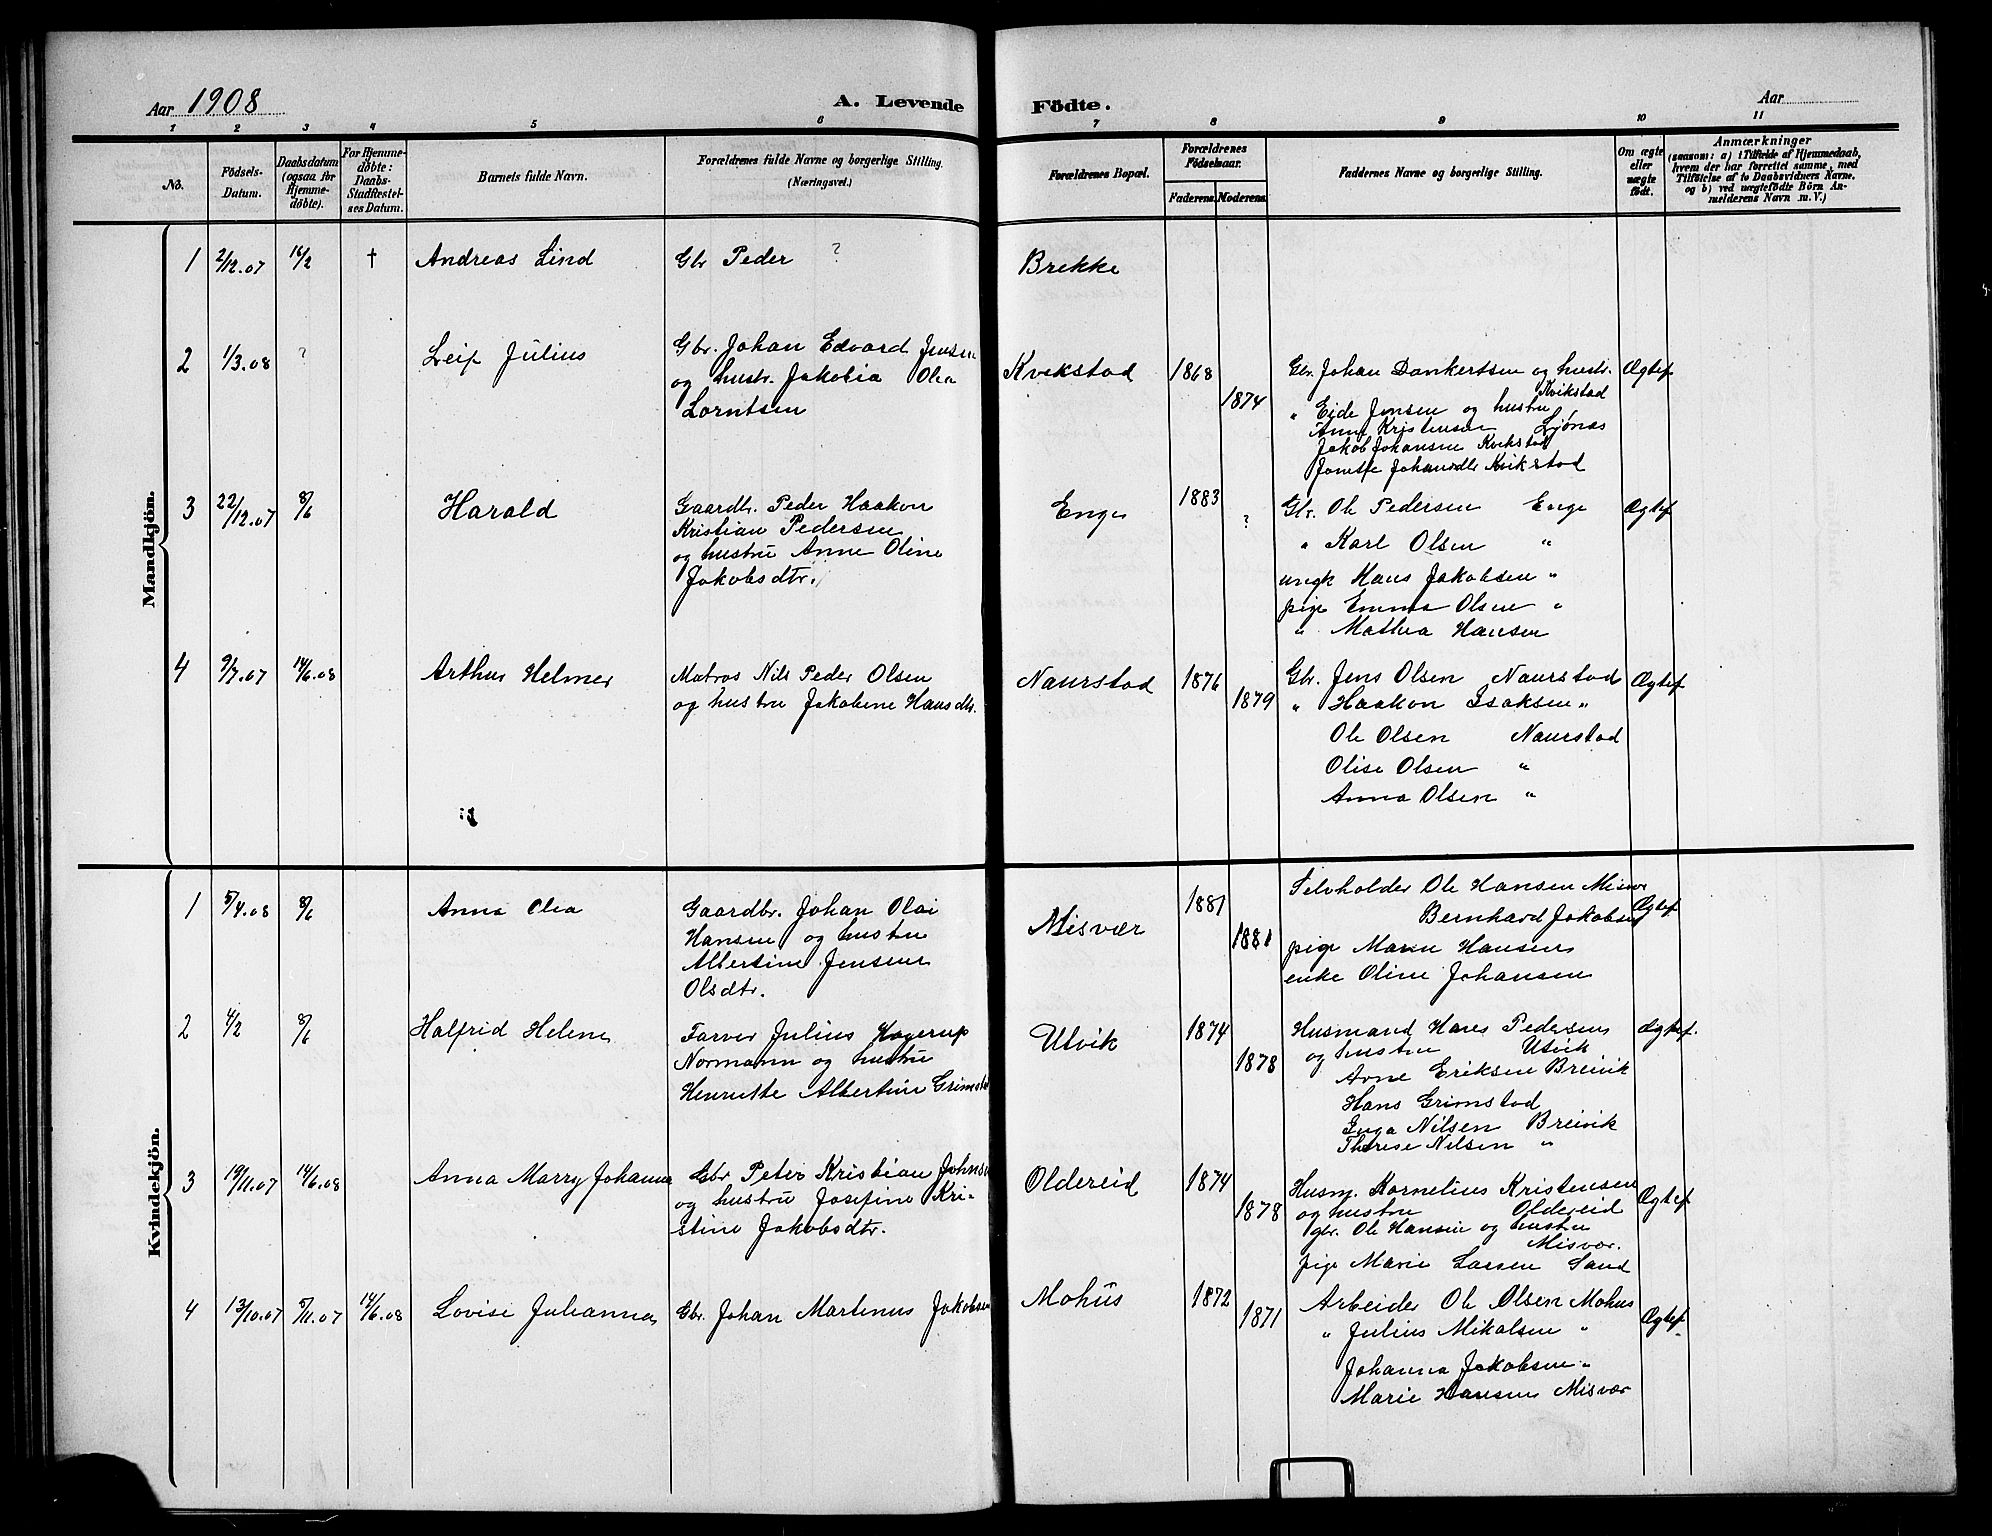 Aar 1908
A. Levende Födte.
Aar
1 2 3 4 5 6 7 8 9 10 11
No.
Födsels-Datum.
Daabsdatum (ogsaa for Hjemmedøbte).
For Hjemmedöbte: Daabs-Stadfæstelses Datum.
Barnets fulde Navn.
Forældrenes fulde Navne og borgerlige Stilling.
(Næringsvei.)
Forældrenes Bopæl.
Forældrenes Födselsaar.
Faderens. Moderens.
Faddernes Navne og borgerlige Stilling.
Om ægte eller uægte födt.
Anmærkninger
(saasom: a) i Tilfælde af Hjemmedaab, hvem der har forrettet samme, med Tilföielse af to Daabsvidners Navne, og b) ved uægtefödte Börn Anmelderens Navn m. V.)
Mandkjön.
1 2/12.07 16/2 † Andreas Lind Gbr Peder ? Brekke
2 1/3.08 ? Leif Julius Gbr. Johan Edvard Jensen
og hustr. Jakobia Olea
Lorntsen
Kvikstad 1868 1874
Gbr. Johan Dankertsen og hustr.
Kvikstad
" Eide Jensen og hustru
Anne Kristensen Ljønes
Jakob Johansen Kvikstad
Johansdtr Kvikstad
Ægtef
3 22/12.07 8/6 Harald Gaardbr. Peder Haakon
Kristian Pedersen
og hustru Anne Oline
Jakobsdtr.
Enge 1883 ?
Gbr. Ole Pedersen Enge
" Karl Olsen "
ungk Hans Jakobsen "
pige Emma Olsen "
" Mathea Hansen
Ægtef
4 9/7.07 14/6.08 Arthur Helmer Matros Nils Peder Olsen
og hustru Jakobine Hansdtr.
Naurstad 1876 1879
Gbr. Jens Olsen Naurstad
" Haakon Isaksen "
Ole Olsen Naurstad
Olise Olsen "
Anna Olsen "
Ægtef
Kvindekjön.
1 5/4.08 8/6 Anna Olea Gaardbr. Johan Olai
Hansen og hustru
Albertine Jensine
Olsdtr.
Misvær 1881 1881
Selvholder Ole Hansen Misvær
Bernhard Jakobsen
pige Maren Hansen
enke Oline Johansen
Ægtef
2 4/2 8/6 Halfrid Helene Farver Julius Hagerup
Normann og hustru
Henriette Albertine Grimstad
Utvik 1874 1878
Husmand Hans Pedersen
og hustru Utvik
Arne Eriksen Breivik
Hans Grimstad
Inga Nilsen Breivik
Therese Nilsen "
Ægtef.
3 19/11.07 14/6.08 Anna Marry Johanna Gbr Peter Kristian Johnsen
og hustru Josefine Kri-
stine Jakobsdtr.
Oldereid 1874 1878
Husm. Kornelius Kristensen
og hustru Oldereid
gbr. Ole Hansen og hustru
Misvær.
pige Marie Larsen Sand
Ægtef
4 13/10.07 5/11.07 14/6.08 Lovise Julianna Gbr. Johan Martinus Jakobsen
Mohus 1872 1871
Arbeider Ole Olsen Mohus
" Julius Mikalsen "
Johanna Jakobsen "
Marie Hansen Misvær
Ægtef.